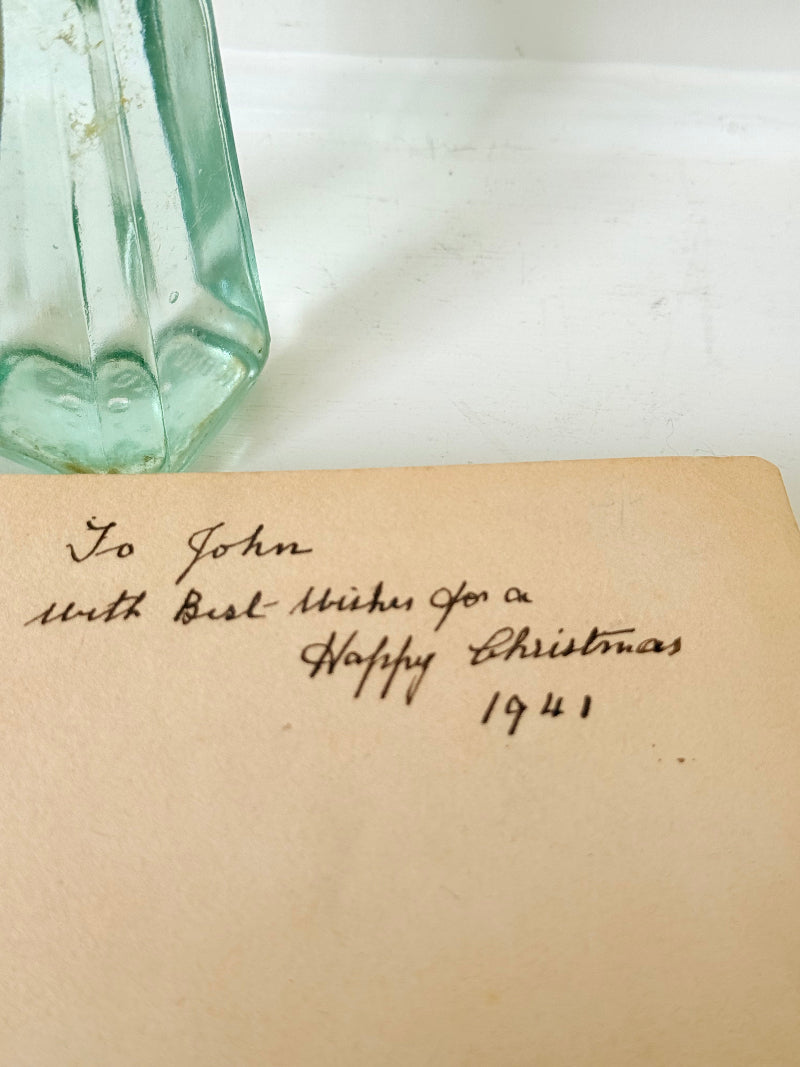 To John
with Best Wishes for a
Happy Christmas
1941